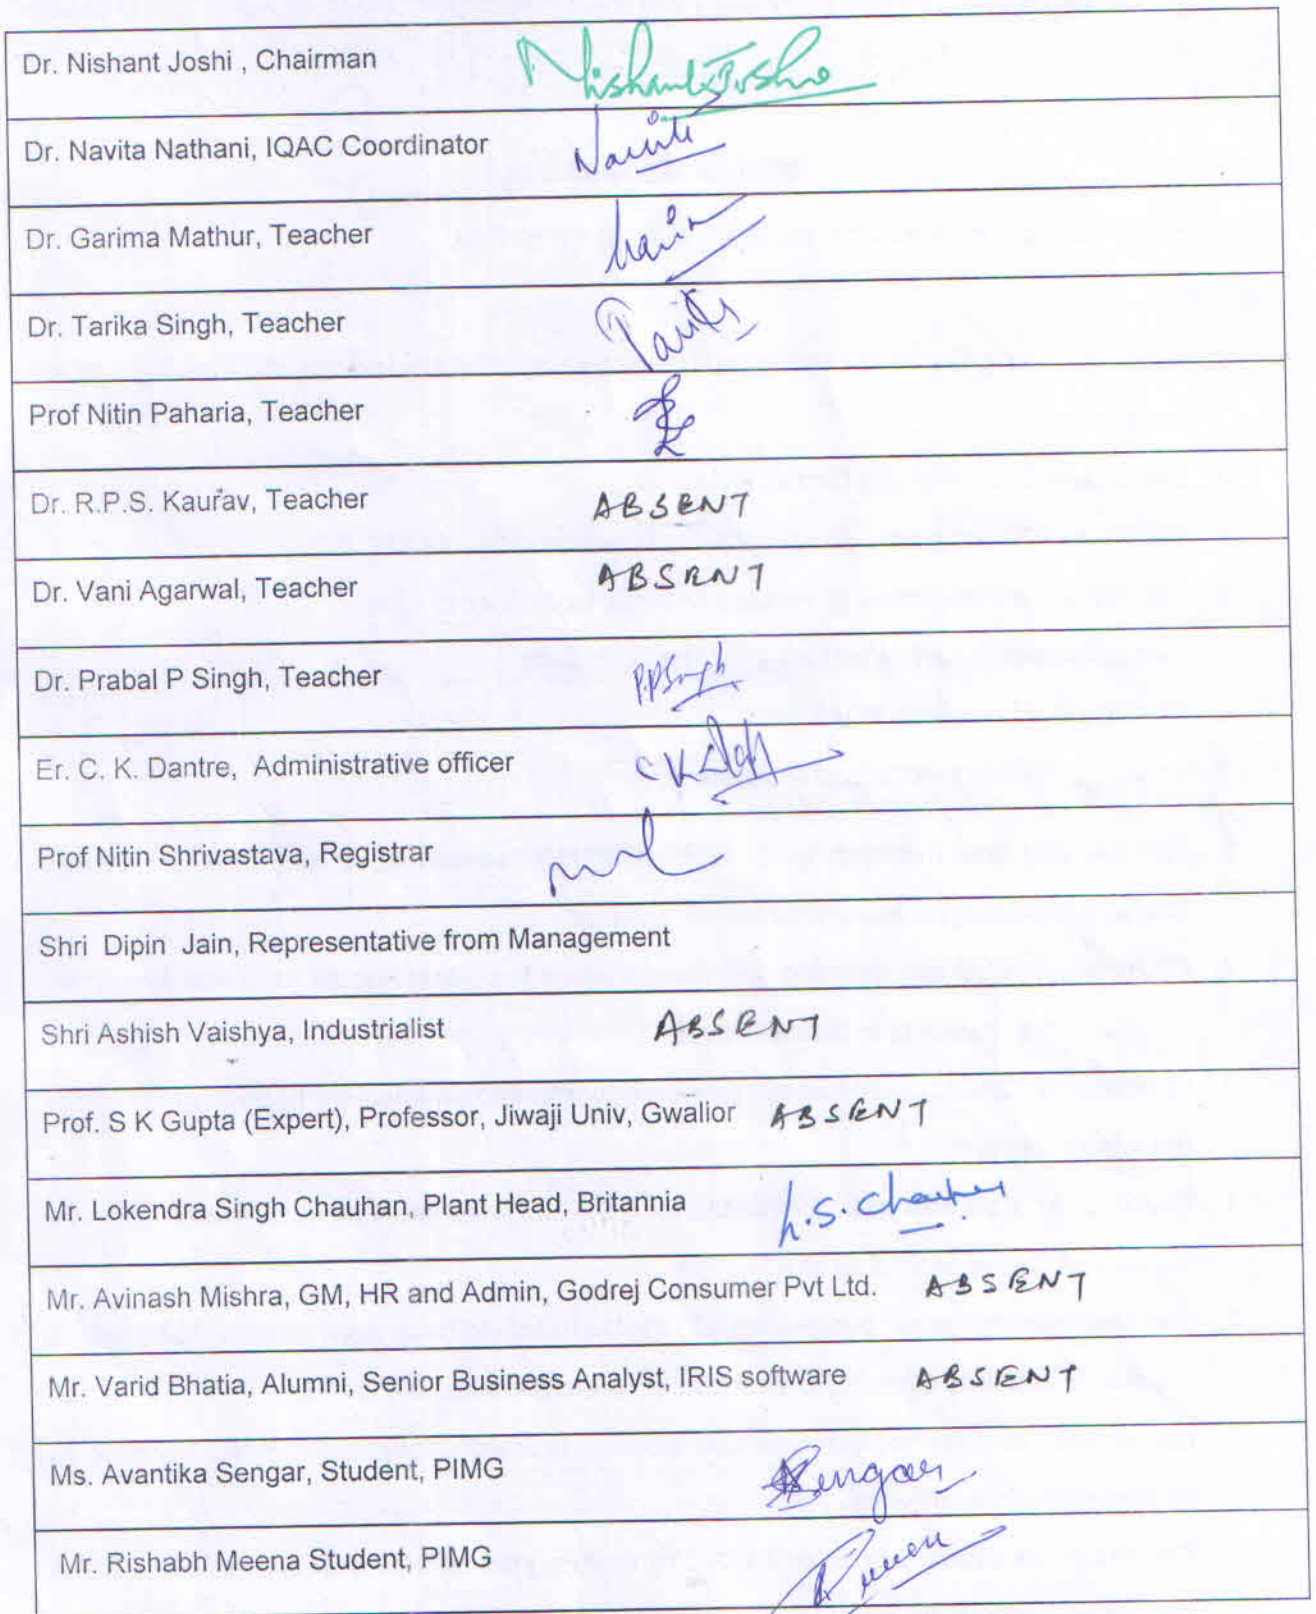 Dr. Nishant Joshi , Chairman Nishant Joshi
Dr. Navita Nathani, IQAC Coordinator Navita
Dr. Garima Mathur, Teacher
Dr. Tarika Singh, Teacher
Prof Nitin Paharia, Teacher
Dr. R.P.S. Kaurav, Teacher ABSENT
Dr. Vani Agarwal, Teacher ABSENT
Dr. Prabal P Singh, Teacher P.P Singh
Er. C. K. Dantre, Administrative officer
Prof Nitin Shrivastava, Registrar
Shri Dipin Jain, Representative from Management
Shri Ashish Vaishya, Industrialist ABSENT
Prof. S K Gupta (Expert), Professor, Jiwaji Univ, Gwalior ABSENT
Mr. Lokendra Singh Chauhan, Plant Head, Britannia L.S. Chauhan
Mr. Avinash Mishra, GM, HR and Admin, Godrej Consumer Pvt Ltd. ABSENT
Mr. Varid Bhatia, Alumni, Senior Business Analyst, IRIS software ABSENT
Ms. Avantika Sengar, Student, PIMG Sengar
Mr. Rishabh Meena Student, PIMG